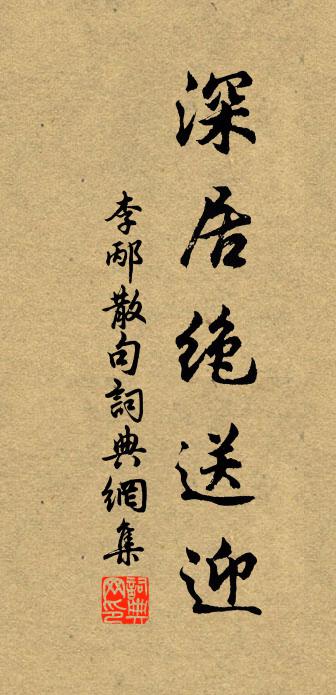 深居绝送迎
李邴散句詞典網集
詞典網印